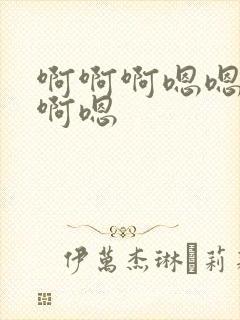 啊啊啊嗯嗯
啊嗯
伊萬杰琳 莉